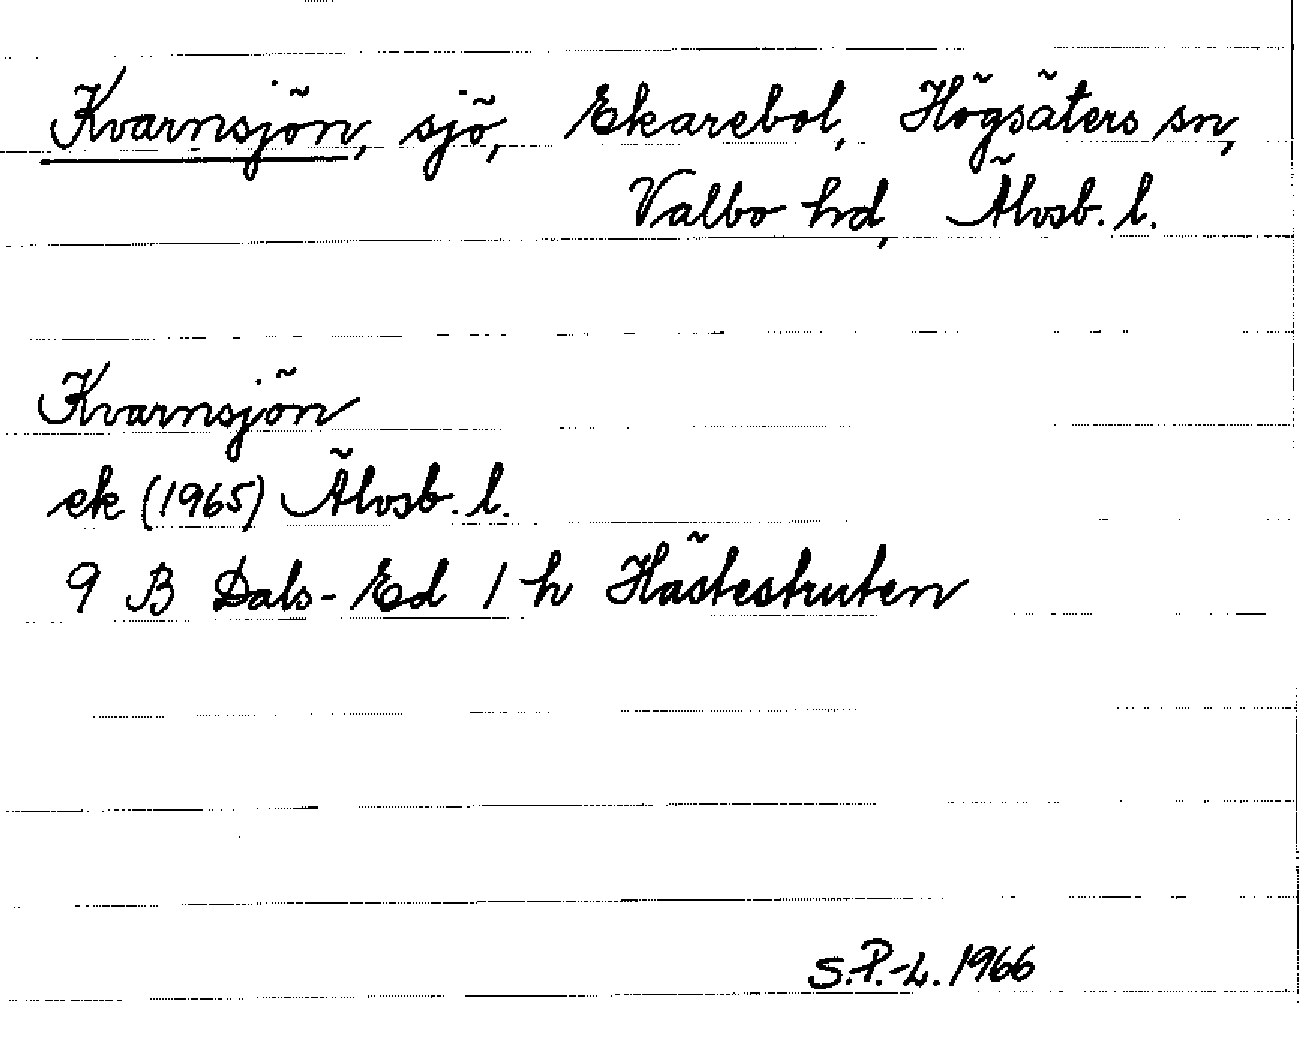 Kvarnsjön, sjö, Ekarebol, Högsäters sn,
Valbo hd, Älvsb. l.
Kvarnsjön
ek (1965) Älvsb. l.
9 B Dals-Ed 1 h Hästestruten
S.P.-L. 1966